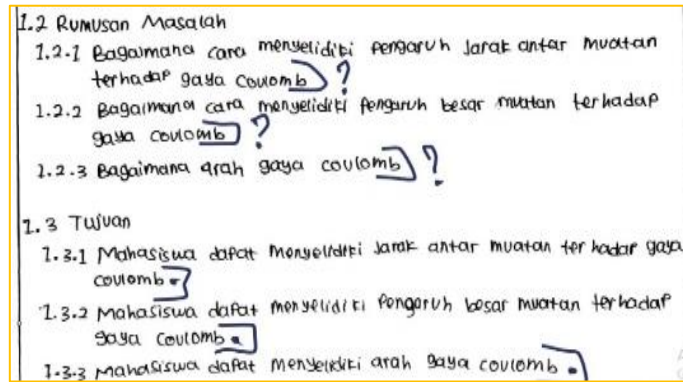 1.2 Rumusan Masalah
1.2.1 Bagaimana cara menyelidiki pengaruh jarak antar muatan
terhadap gaya coulomb ?
1.2.2 Bagaimana cara menyelidiki pengaruh besar muatan terhadap
gaya coulomb ?
1.2.3 Bagaimana arah gaya coulomb ?
1.3 Tujuan
1.3.1 Mahasiswa dapat menyelidiki jarak antar muatan terhadap gaya
coulomb .
1.3.2 Mahasiswa dapat menyelidiki pengaruh besar muatan terhadap
gaya coulomb .
1.3.3 Mahasiswa dapat menyelidiki arah gaya coulomb .